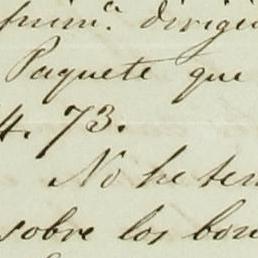 dirigi
Paquete que
4. 73.
No he ten
sobre los bon